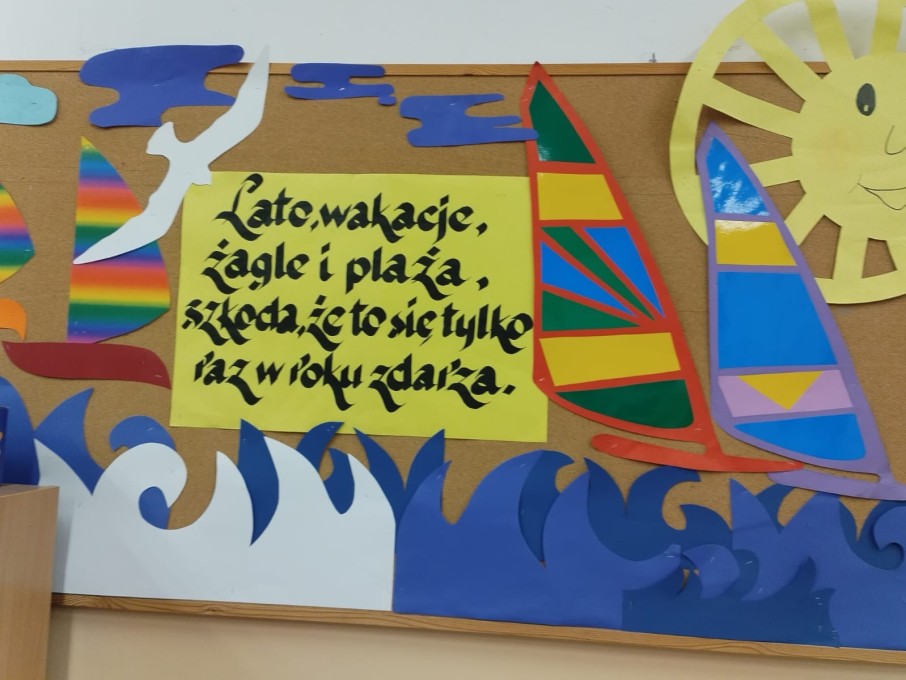 Lato, wakacje,
żagle i plaża,
szkoda, że to się tylko
raz w roku zdarza.